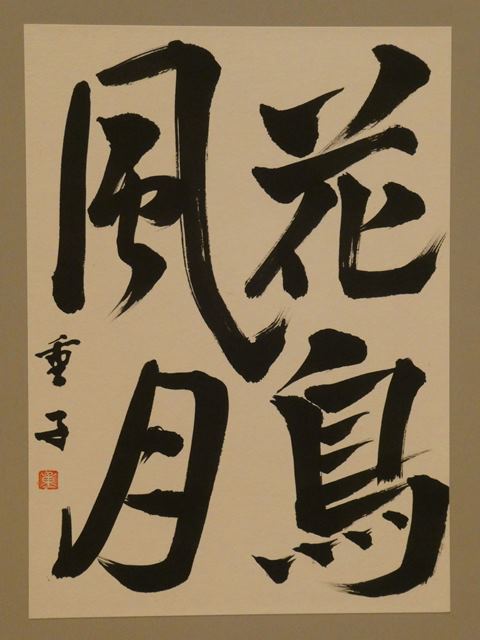 花鳥
風月
重子